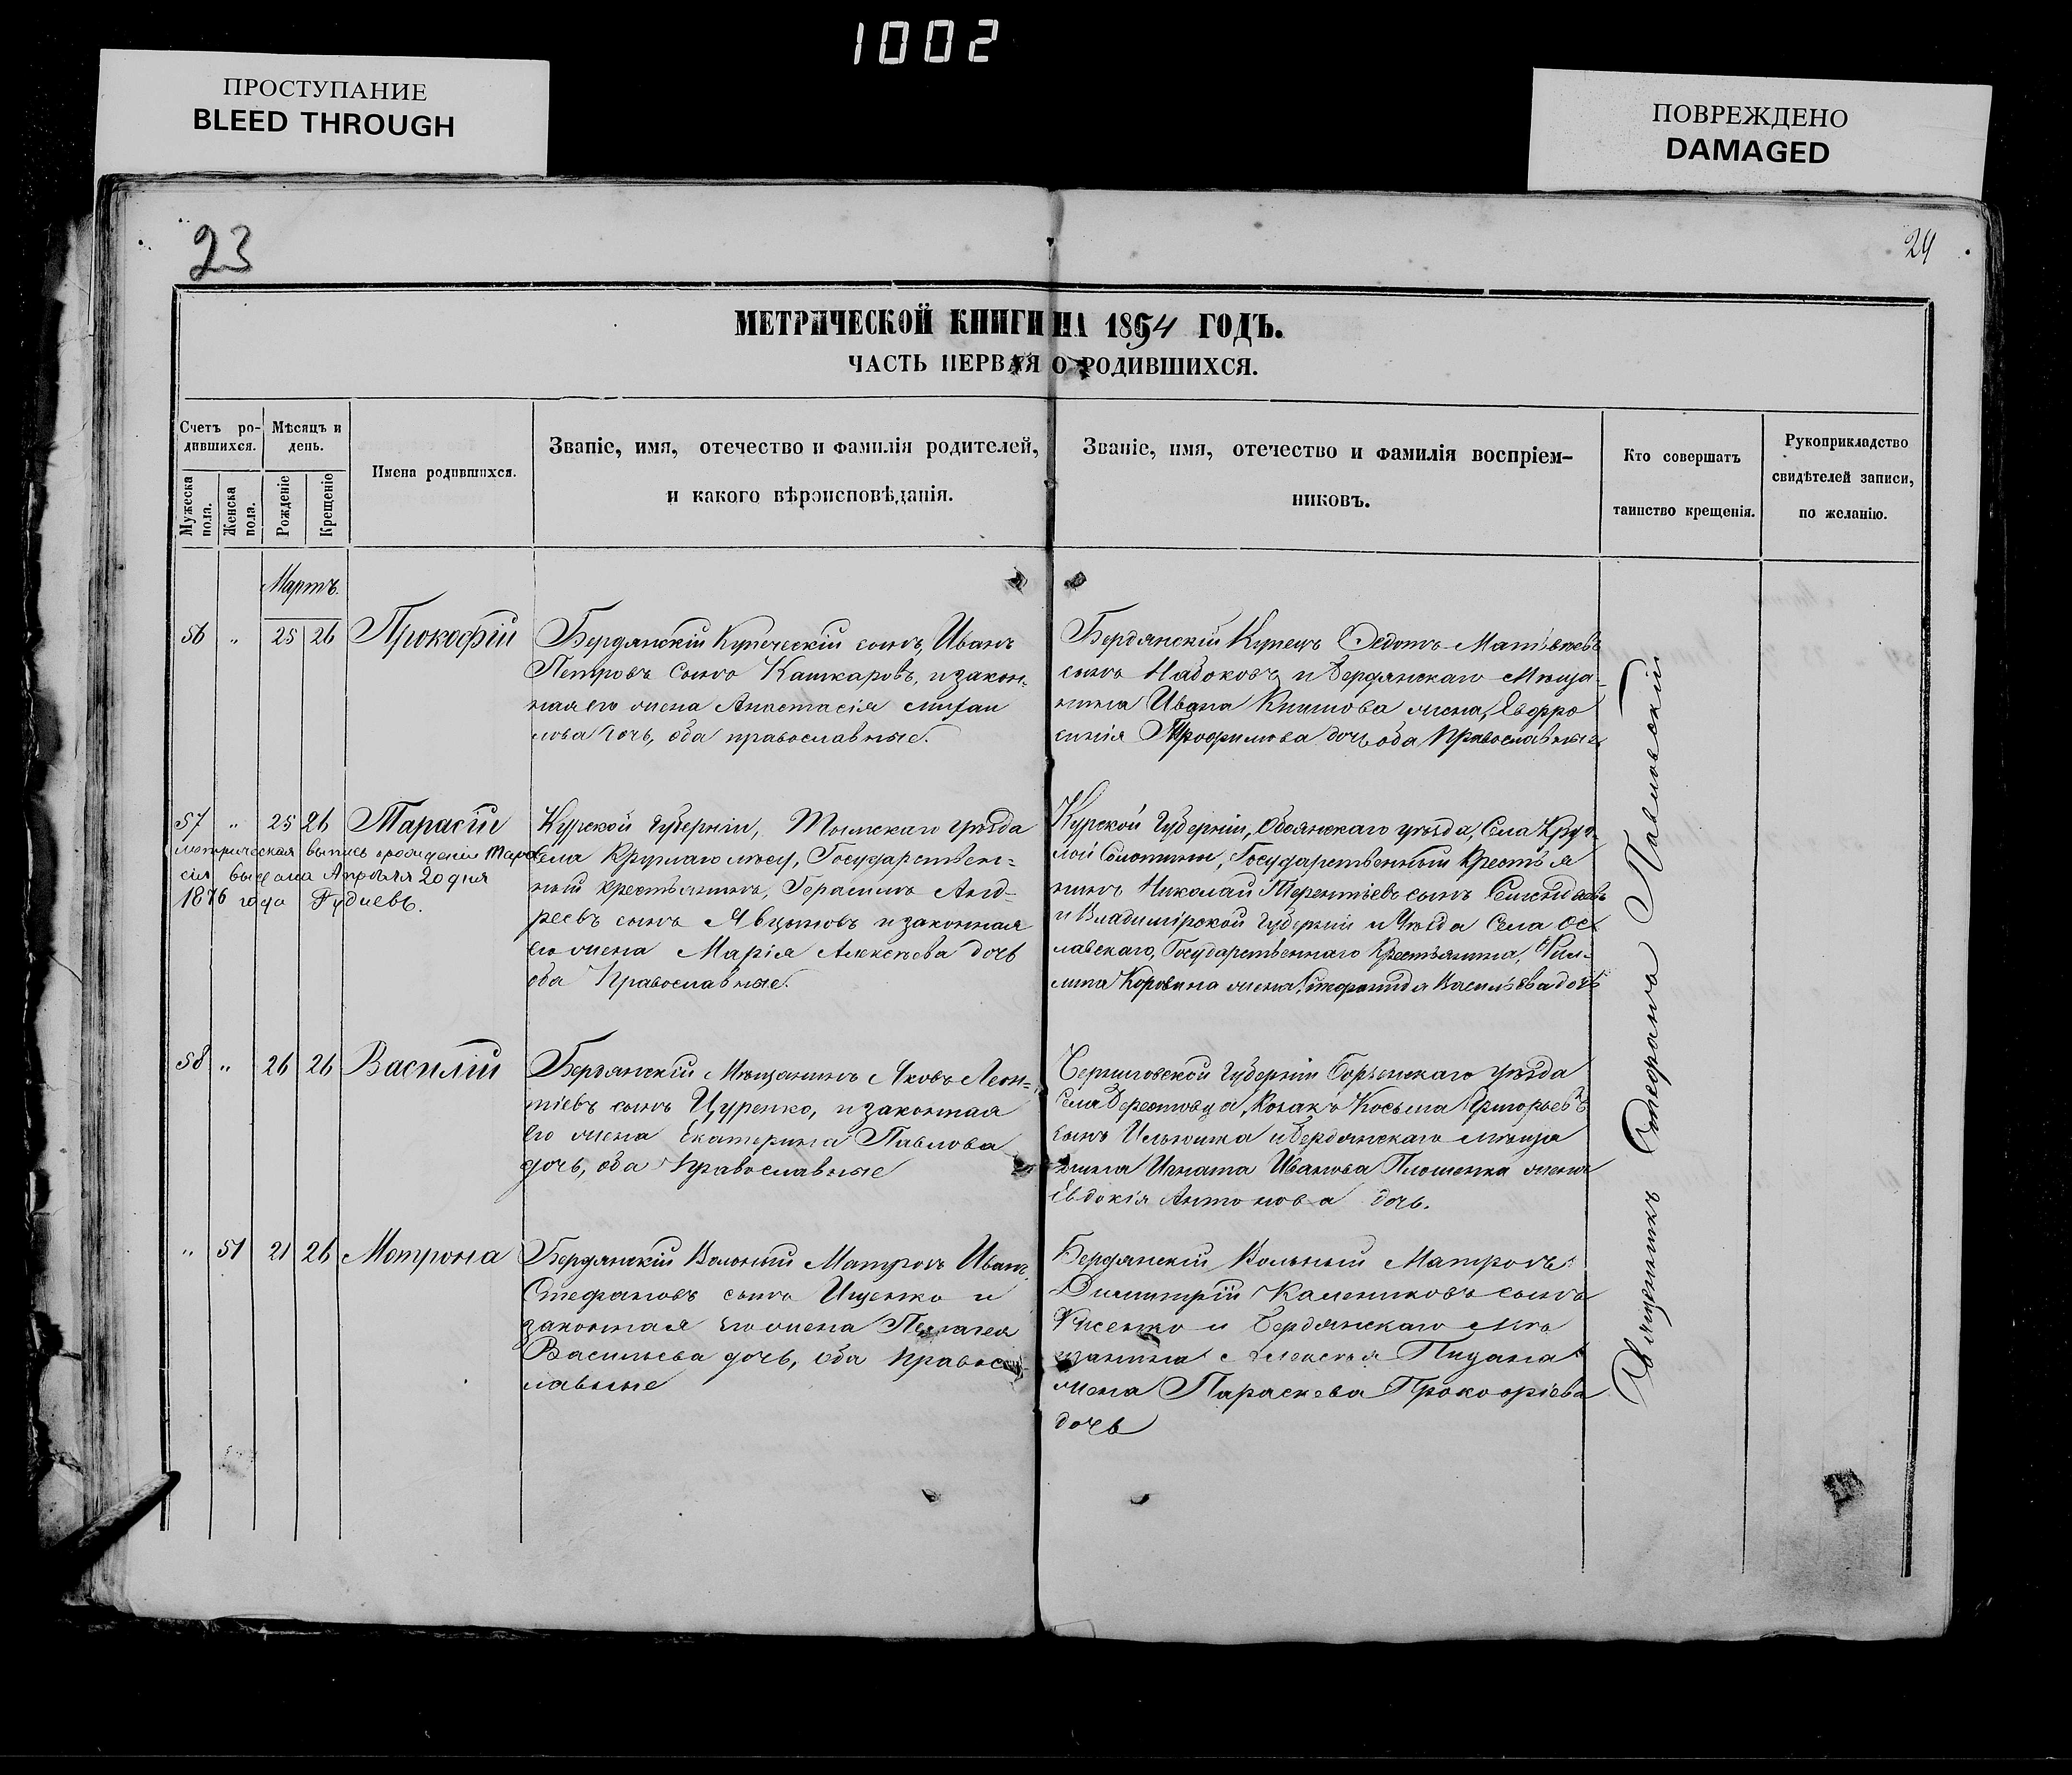 1002
ПРОСТУПАНИЕ
BLEED THROUGH
ПОВРЕЖДЕНО
DAMAGED
23
24
МЕТРИЧЕСКОЙ КНИГИ НА 1854 ГОДЪ.
ЧАСТЬ ПЕРВАЯ О РОДИВШИХСЯ.
Счетъ ро-
дившихся.
Мужеска
пола.
Женска
пола.
Мѣсяцъ и
день.
Рожденіе
Крещеніе
Имена родившихся.
Званіе, имя, отечество и фамилія родителей,
и какого вѣроисповѣданія.
Званіе, имя, отечество и фамилія воспріем-
никовъ.
Кто совершатъ
таинство крещенія.
Рукоприкладство
свидѣтелей записи,
по желанію.
Мартъ.
56 " 25 26 Прокофій
Бердянскій Купеческій сынъ, Иванъ
Петровъ сынъ Кашкаровъ, и закон-
ная его жена Анастасія
дочь, оба православные.
Бердянскій Купецъ Федотъ Матвѣевъ
сынъ Набоковъ и Бердянскаго Мѣща-
нина Ивана жена, Евфро
синія Трофимова дочь оба Православные
57 " 25 26 Тарасій
метрическая выпись о рожденіи Тара
сія выдана Апрѣля 20 дня
1876 года Гудиевъ.
Курской Губерніи, Тимскаго уѣзда
Села Круглаго Государствен-
ный крестьянинъ, Герасимъ Анд-
реевъ сынъ и законная
его жена Марія Алексѣева дочь
оба Православные.
Курской Губерніи, Обоянскаго уѣзда, Села Круг-
лой Государственный Крестья
нинъ Николай Терентіевъ сынъ
и Владимірской Губерніи и Уѣзда Села
лавскаго, Государственнаго Крестьянина,
Коровина жена Васильева дочь
58 " 26 26 Василій
Бердянскій Мѣщанинъ Яковъ Леон-
тіевъ сынъ Цуренко, и законная
его жена Екатерина Павлова
дочь, оба Православные
Черниговской Губерніи уѣзда
Села Козакъ Косьма Григорьевъ
сынъ и Бердянскаго мѣща
нина Игната Иванова жена
Евдокія Антонова дочь.
" 51 21 26 Матрона
Бердянскій Вольный Матрозъ Иванъ
Стефановъ сынъ Ищенко и
законная его жена Пелагея
Васильева дочь, оба Правос-
лавные
Бердянскій Вольный Матрозъ
Димитрій сынъ
и Бердянскаго Мѣ
щанина Алексѣя
жена Параскева Прокофіева
дочь
Священникъ Стефанъ Павловскій